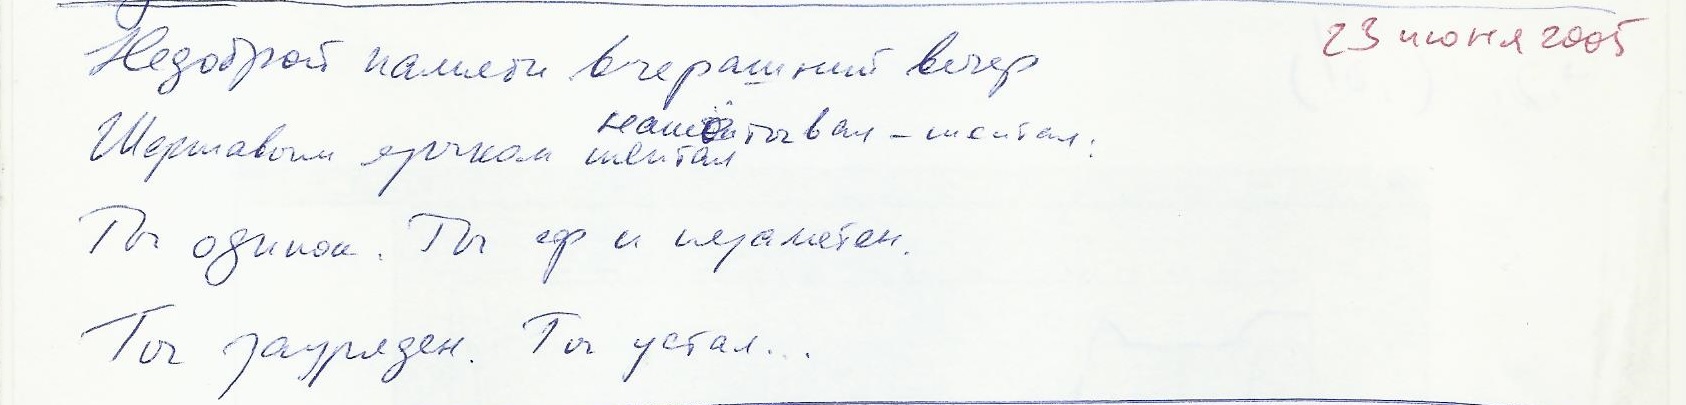 23 июня 2005
Недоброй памяти вчерашний вечер
нашёптывал – шептал:
Шершавым язычком шептал
Ты одинок. Ты сер и незаметен.
Ты зауряден. Ты устал...